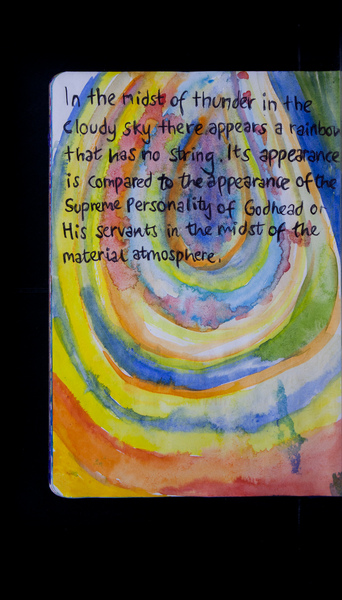 In the midst of thunder in the
cloudy sky there appears a rainbow
that has no string. Its appearance
is compared to the appearance of the
Supreme Personality of Godhead or
His servants in the midst of the
material atmosphere.